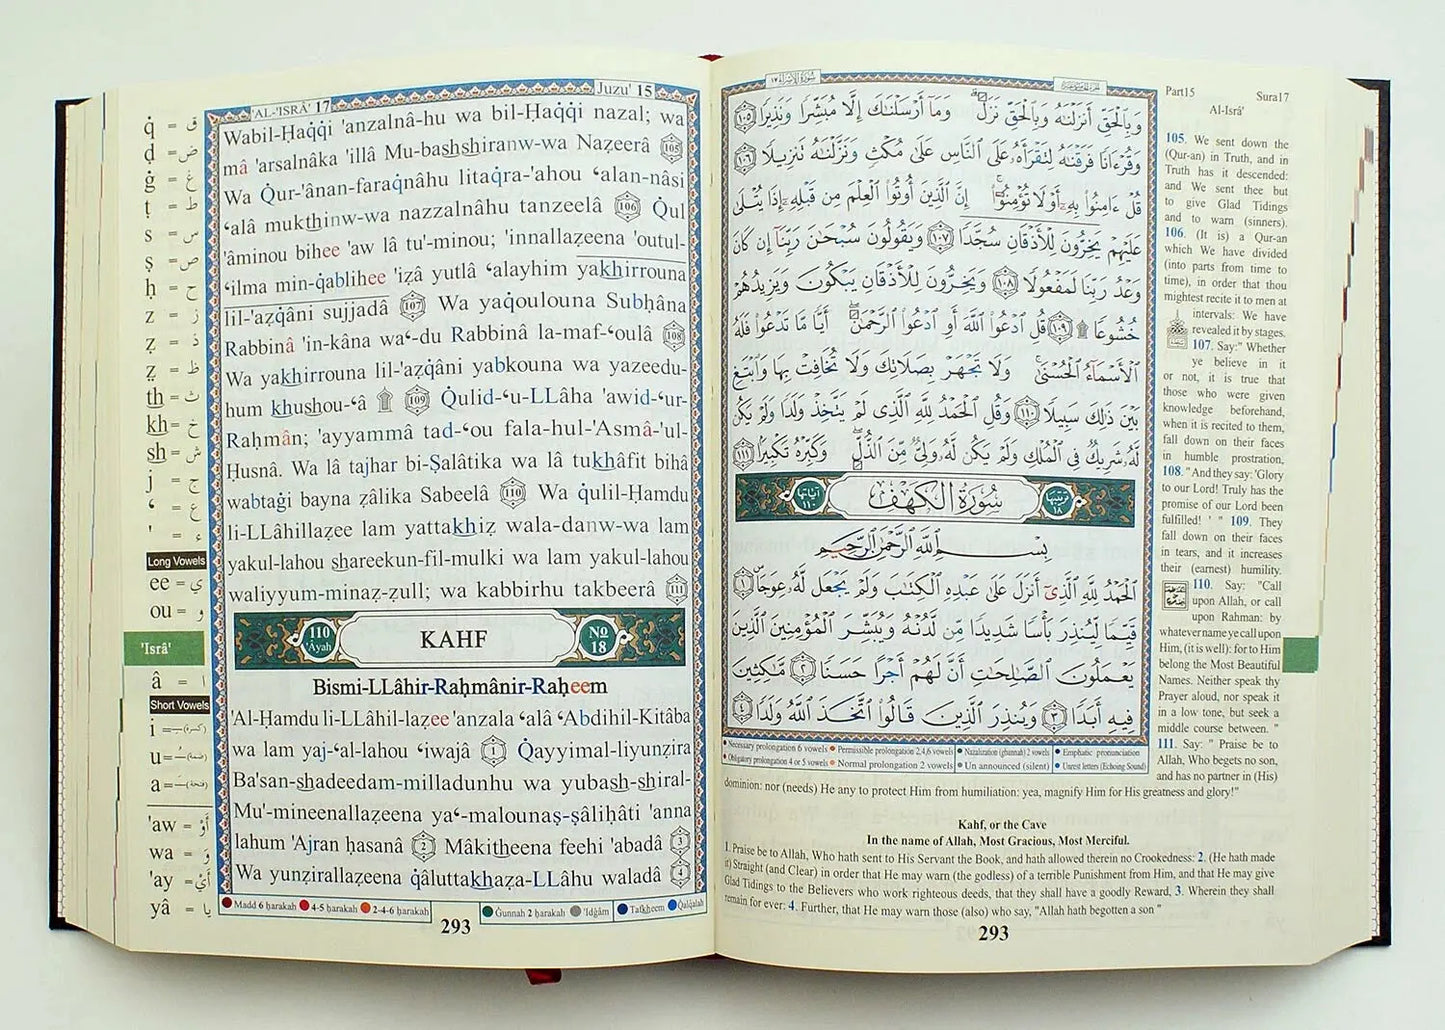 'AL-'ISRÂ' 17
Juzu' 15
Wabil-Ḥaqqi 'anzalnâ-hu wa bil-Ḥaqqi nazal; wa
mâ 'arsalnâka 'illâ Mu-bashshiranw-wa Naẓeerâ 105
Wa Q̇ur-'ânan-faraq̇nâhu litaq̇ra-'ahou ʻalan-nâsi
ʻalâ mukthinw-wa nazzalnâhu tanzeelâ 106 Q̇ul
'âminou bihee 'aw lâ tu'-minou; 'innallaẓeena 'outul-
ʻilma min-q̇ablihee 'iẓâ yutlâ ʻalayhim yakhirrouna
lil-'aẓq̇âni sujjadâ 107 Wa yaq̇oulouna Subḥâna
Rabbinâ 'in-kâna waʻ-du Rabbinâ la-maf-ʻoulâ 108
Wa yakhirrouna lil-'aẓq̇âni yabkouna wa yazeedu-
hum khushou-ʻâ ۩ 109 Q̇ulid-ʻu-LLâha 'awid-ʻur-
Raḥmân; 'ayyammâ tad-ʻou fala-hul-'Asmâ-'ul-
Ḥusnâ. Wa lâ tajhar bi-Ṣalâtika wa lâ tukhâfit bihâ
wabtaġi bayna ẓâlika Sabeelâ 110 Wa q̇ulil-Ḥamdu
li-LLâhillaẓee lam yattakhiẓ wala-danw-wa lam
yakul-lahou shareekun-fil-mulki wa lam yakul-lahou
waliyyum-minaẓ-ẓull; wa kabbirhu takbeerâ 111
110 Ayah KAHF No 18
Bismi-LLâhir-Raḥmânir-Raḥeem
'Al-Ḥamdu li-LLâhil-laẓee 'anzala ʻalâ ʻAbdihil-Kitâba
wa lam yaj-ʻal-lahou ʻiwajâ 1 Q̇ayyimal-liyunẓira
Ba'san-shadeedam-milladunhu wa yubash-shiral-
Mu'-mineenallaẓeena yaʻ-malounaṣ-ṣâliḥâti 'anna
lahum 'Ajran ḥasanâ 2 Mâkitheena feehi 'abadâ 3
Wa yunẓirallaẓeena q̇âluttakhaẓa-LLâhu waladâ 4
Madd 6 ḥarakah 4-5 ḥarakah 2-4-6 ḥarakah Ġunnah 2 ḥarakah 'Idġâm Tafkheem Qalqalah
293
q̇ = ق
ḍ = ض
ġ = غ
ṭ = ط
s = س
ṣ = ص
ḥ = ح
z = ز
ẓ = ذ
ẓ = ظ
th = ث
kh = خ
sh = ش
j = ج
ʻ = ع
' = ء
Long Vowels
ee = ي
ou = و
'Isrâ'
â = ا
Short Vowels
i = (كسرة)
u = (ضمة)
a = (فتحة)
'aw = أَوْ
wa = وَ
'ay = أَيْ
yâ = يا
سُورَةُ الإِسْرَاءِ ١٧
وَبِالْحَقِّ أَنزَلْنَٰهُ وَبِالْحَقِّ نَزَلَ ۗ وَمَآ أَرْسَلْنَٰكَ إِلَّا مُبَشِّرًا وَنَذِيرًا ١٠٥
وَقُرْءَانًا فَرَقْنَٰهُ لِتَقْرَأَهُۥ عَلَى النَّاسِ عَلَىٰ مُكْثٍ وَنَزَّلْنَٰهُ تَنزِيلًا ١٠٦
قُلْ ءَامِنُوا۟ بِهِۦٓ أَوْ لَا تُؤْمِنُوٓا۟ ۚ إِنَّ الَّذِينَ أُوتُوا۟ الْعِلْمَ مِن قَبْلِهِۦٓ إِذَا يُتْلَىٰ
عَلَيْهِمْ يَخِرُّونَ لِلْأَذْقَانِ سُجَّدًا ١٠٧ وَيَقُولُونَ سُبْحَٰنَ رَبِّنَآ إِن كَانَ
وَعْدُ رَبِّنَا لَمَفْعُولًا ١٠٨ وَيَخِرُّونَ لِلْأَذْقَانِ يَبْكُونَ وَيَزِيدُهُمْ
خُشُوعًا ۩ ١٠٩ قُلِ ادْعُوا۟ اللَّهَ أَوِ ادْعُوا۟ الرَّحْمَٰنَ ۖ أَيًّا مَّا تَدْعُوا۟ فَلَهُ
الْأَسْمَآءُ الْحُسْنَىٰ ۚ وَلَا تَجْهَرْ بِصَلَاتِكَ وَلَا تُخَافِتْ بِهَا وَابْتَغِ
بَيْنَ ذَٰلِكَ سَبِيلًا ١١٠ وَقُلِ الْحَمْدُ لِلَّهِ الَّذِى لَمْ يَتَّخِذْ وَلَدًا وَلَمْ يَكُن
لَّهُۥ شَرِيكٌ فِى الْمُلْكِ وَلَمْ يَكُن لَّهُۥ وَلِىٌّ مِّنَ الذُّلِّ ۖ وَكَبِّرْهُ تَكْبِيرًۢا ١١١
ترتيبها ١٨ سُورَةُ الْكَهْفِ آياتها ١١٠
بِسْمِ اللَّهِ الرَّحْمَٰنِ الرَّحِيمِ
الْحَمْدُ لِلَّهِ الَّذِىٓ أَنزَلَ عَلَىٰ عَبْدِهِ الْكِتَٰبَ وَلَمْ يَجْعَل لَّهُۥ عِوَجَا ۜ ١
قَيِّمًا لِّيُنذِرَ بَأْسًا شَدِيدًا مِّن لَّدُنْهُ وَيُبَشِّرَ الْمُؤْمِنِينَ الَّذِينَ
يَعْمَلُونَ الصَّٰلِحَٰتِ أَنَّ لَهُمْ أَجْرًا حَسَنًا ٢ مَّٰكِثِينَ
فِيهِ أَبَدًا ٣ وَيُنذِرَ الَّذِينَ قَالُوا۟ اتَّخَذَ اللَّهُ وَلَدًا ٤
Necessary prolongation 6 vowels Permissible prolongation 2,4,6 vowels Nazalization (ghunnah) 2 vowels Emphatic pronunciation
Obligatory prolongation 4 or 5 vowels Normal prolongation 2 vowels Un announced (silent) Unrest letters (Echoing Sound)
Part15 Sura17
Al-Isrâ'
105. We sent down the
(Qur-an) in Truth, and in
Truth has it descended:
and We sent thee but
to give Glad Tidings
and to warn (sinners).
106. (It is) a Qur-an
which We have divided
(into parts from time to
time), in order that thou
mightest recite it to men at
intervals: We have
revealed it by stages.
107. Say:" Whether
ye believe in it
or not, it is true that
those who were given
knowledge beforehand,
when it is recited to them,
fall down on their faces
in humble prostration,
108. "And they say: 'Glory
to our Lord! Truly has the
promise of our Lord been
fulfilled! ' " 109. They
fall down on their faces
in tears, and it increases
their (earnest) humility.
110. Say: "Call
upon Allah, or call
upon Rahman: by
whatever name ye call upon
Him, (it is well): for to Him
belong the Most Beautiful
Names. Neither speak thy
Prayer aloud, nor speak it
in a low tone, but seek a
middle course between. "
111. Say: " Praise be to
Allah, Who begets no son,
and has no partner in (His)
dominion: nor (needs) He any to protect Him from humiliation: yea, magnify Him for His greatness and glory!"
Kahf, or the Cave
In the name of Allah, Most Gracious, Most Merciful.
1. Praise be to Allah, Who hath sent to His Servant the Book, and hath allowed therein no Crookedness: 2. (He hath made
it) Straight (and Clear) in order that He may warn (the godless) of a terrible Punishment from Him, and that He may give
Glad Tidings to the Believers who work righteous deeds, that they shall have a goodly Reward, 3. Wherein they shall
remain for ever: 4. Further, that He may warn those (also) who say, "Allah hath begotten a son "
293